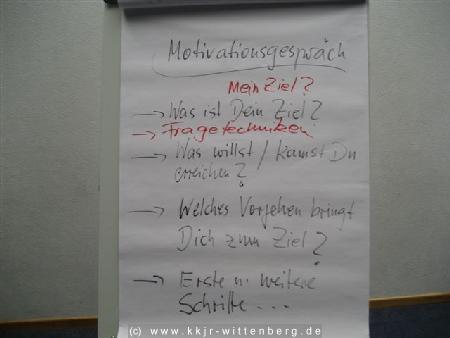 Motivationsgespräch
Mein Ziel?
→ Was ist Dein Ziel?
→ Fragetechniken
→ Was willst / kannst Du
erreichen?
→ Welches Vorgehen bringt
Dich zum Ziel?
→ Erste u. weitere
Schritte...
(c) www.kkjr-wittenberg.de